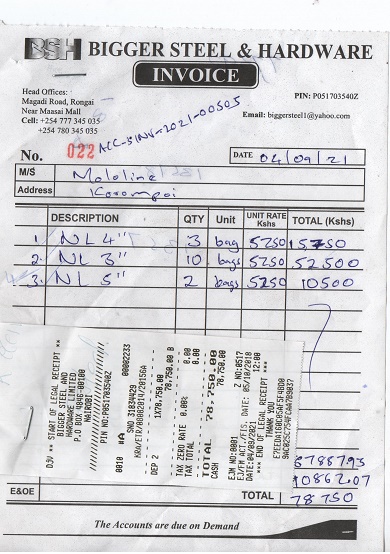 BSH BIGGER STEEL & HARDWARE
INVOICE
Head Offices:
Magadi Road, Rongai
Near Maasai Mall
Cell: +254 777 345 035
+254 780 345 035
PIN: P051703540Z
Email: biggersteel1@yahoo.com
No. 022 ACC-SINV-2021-00505
DATE 04/09/21
M/S Mololine
Address Korompoi
DESCRIPTION QTY Unit UNIT RATE Kshs TOTAL (Kshs)
1. NL 4" 3 bag 5250 15750
2. NL 3" 10 bags 5250 52500
3. NL 5" 2 bags 5250 10500
** START OF LEGAL RECEIPT **
BIGGER STEEL AND
HARDWARE LIMITED
NAIROBI
PIN NO:P051703540Z
0010 #A 00002233
SNO 31834429
DEP 2 1X78,750.00 B
78,750.00 B
TAX ZERO RATE 0.00% 0.00
TAX TOTAL 0.00
TOTAL 78,750.00
CASH 78,750.00
EJM NO:0001 Z NO:0517
EJ/FM ACT./FIS. DATE: 05/10/2018
12:00
** END OF LEGAL RECEIPT **
THANK YOU
67887.93
10862.07
E&OE TOTAL 78750
The Accounts are due on Demand